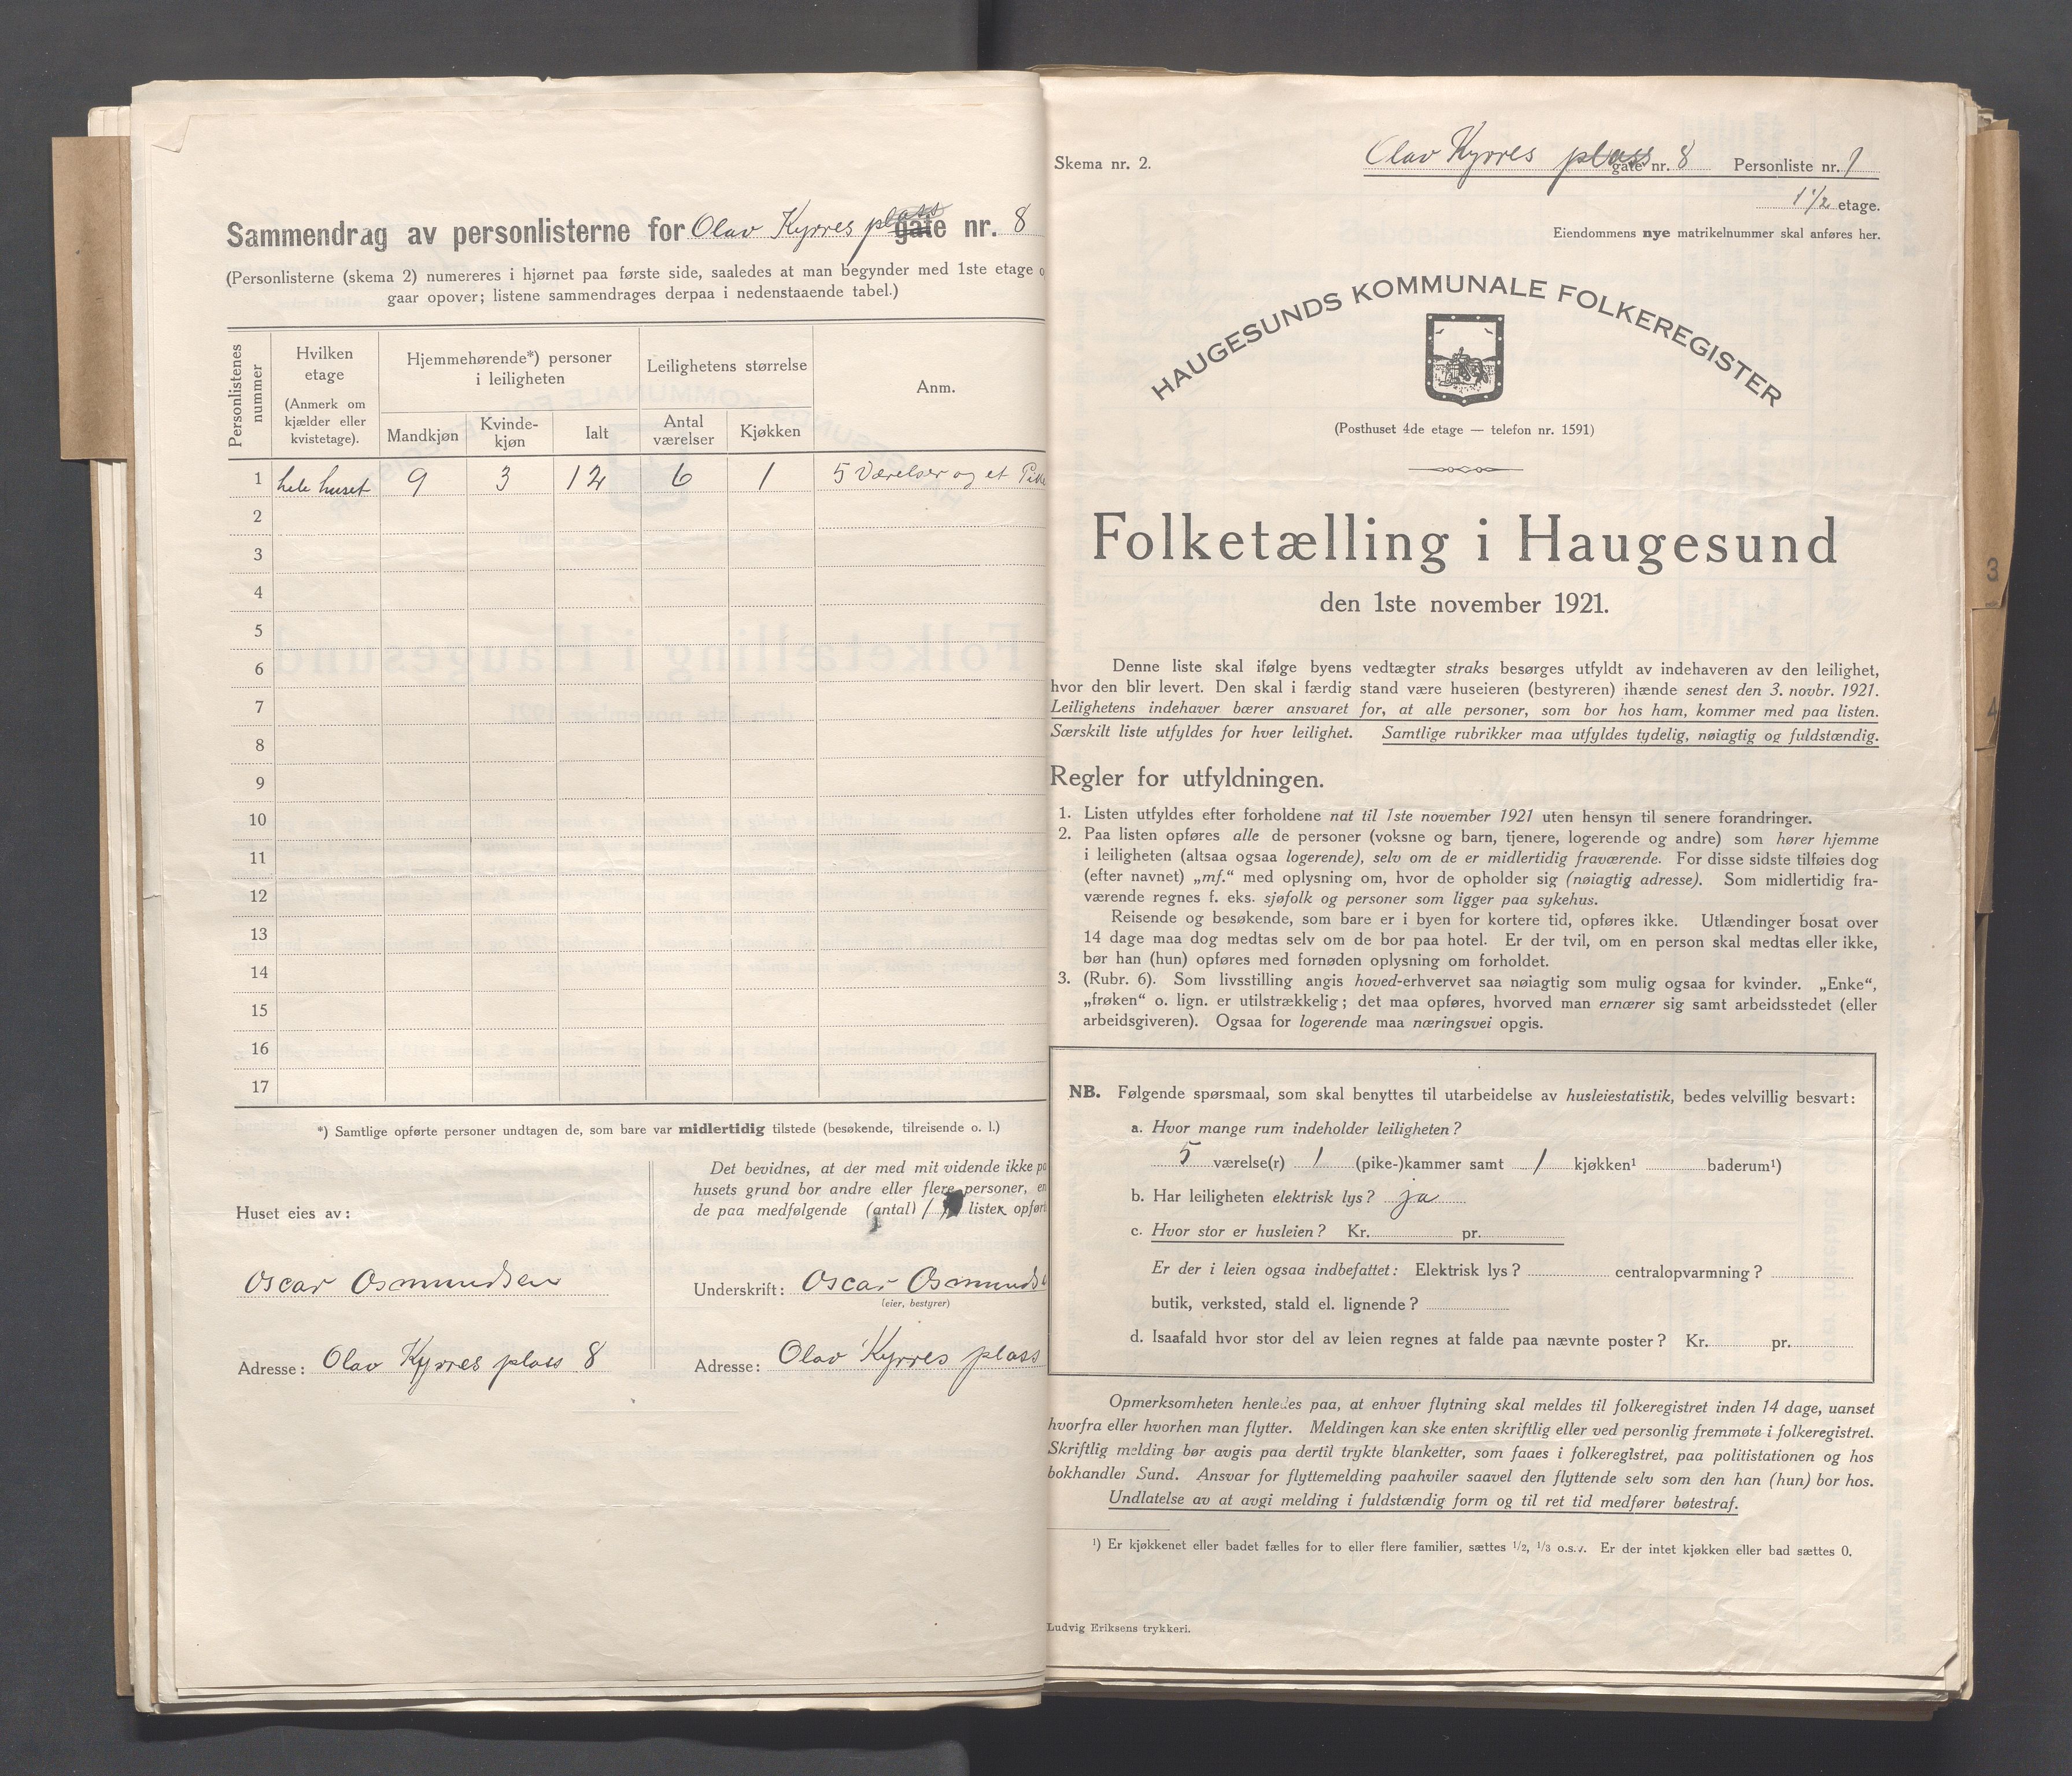 Sammendrag av personlisterne for Olav Kyrres plass gate nr. 8
(Personlisterne (skema 2) numereres i hjørnet paa første side, saaledes at man begynder med 1ste etage o
gaar opover; listene sammendrages derpaa i nedenstaaende tabel.)
Personlistenes nummer
Hvilken etage
(Anmerk om kjælder eller kvistetage).
Hjemmehørende*) personer i leiligheten
Mandkjøn
Kvinde-kjøn
Ialt
Leilighetens størrelse
Antal værelser
Kjøkken
Anm.
1 hele huset 9 3 12 6 1 5 Værelser og et Pike
2
3
4
5
6
7
8
9
10
11
12
13
14
15
16
17
*) Samtlige opførte personer undtagen de, som bare var midlertidig tilstede (besøkende, tilreisende o. l.)
Huset eies av:
Oscar Osmundsen
Adresse: Olav Kyrres plass 8
Det bevidnes, at der med mit vidende ikke pa
husets grund bor andre eller flere personer, en
de paa medfølgende (antal) 1 lister opført
Underskrift: Oscar Osmunds
(eier, bestyrer)
Adresse: Olav Kyrres plass
Skema nr. 2.
Olav Kyrres plass gate nr. 8 Personliste nr. 1
1 1/2 etage.
Eiendommens nye matrikelnummer skal anføres her.
HAUGESUNDS KOMMUNALE FOLKEREGISTER
(Posthuset 4de etage — telefon nr. 1591)
Folketælling i Haugesund
den 1ste november 1921.
Denne liste skal ifølge byens vedtægter straks besørges utfyldt av indehaveren av den leilighet,
hvor den blir levert. Den skal i færdig stand være huseieren (bestyreren) ihænde senest den 3. novbr. 1921.
Leilighetens indehaver bærer ansvaret for, at alle personer, som bor hos ham, kommer med paa listen.
Særskilt liste utfyldes for hver leilighet. Samtlige rubrikker maa utfyldes tydelig, nøiagtig og fuldstændig.
Regler for utfyldningen.
1. Listen utfyldes efter forholdene nat til 1ste november 1921 uten hensyn til senere forandringer.
2. Paa listen opføres alle de personer (voksne og barn, tjenere, logerende og andre) som hører hjemme
i leiligheten (altsaa ogsaa logerende), selv om de er midlertidig fraværende. For disse sidste tilføies dog
(efter navnet) „mf.“ med oplysning om, hvor de opholder sig (nøiagtig adresse). Som midlertidig fra-
værende regnes f. eks. sjøfolk og personer som ligger paa sykehus.
Reisende og besøkende, som bare er i byen for kortere tid, opføres ikke. Utlændinger bosat over
14 dage maa dog medtas selv om de bor paa hotel. Er der tvil, om en person skal medtas eller ikke,
bør han (hun) opføres med fornøden oplysning om forholdet.
3. (Rubr. 6). Som livsstilling angis hoved-erhvervet saa nøiagtig som mulig ogsaa for kvinder. „Enke“,
„frøken“ o. lign. er utilstrækkelig; det maa opføres, hvorved man ernærer sig samt arbeidsstedet (eller
arbeidsgiveren). Ogsaa for logerende maa næringsvei opgis.
NB. Følgende spørsmaal, som skal benyttes til utarbeidelse av husleiestatistik, bedes velvillig besvart:
a. Hvor mange rum indeholder leiligheten?
5 værelse(r) 1 (pike-)kammer samt 1 kjøkken¹ baderum¹)
b. Har leiligheten elektrisk lys? ja
c. Hvor stor er husleien? Kr. pr.
Er der i leien ogsaa indbefattet: Elektrisk lys? centralopvarmning?
butik, verksted, stald el. lignende?
d. Isaafald hvor stor del av leien regnes at falde paa nævnte poster? Kr. pr.
Opmerksomheten henledes paa, at enhver flytning skal meldes til folkeregistret inden 14 dage, uanset
hvorfra eller hvorhen man flytter. Meldingen kan ske enten skriftlig eller ved personlig fremmøte i folkeregistret.
Skriftlig melding bør avgis paa dertil trykte blanketter, som faaes i folkeregistret, paa politistationen og hos
bokhandler Sund. Ansvar for flyttemelding paahviler saavel den flyttende selv som den han (hun) bor hos.
Undlatelse av at avgi melding i fuldstændig form og til ret tid medfører bøtestraf.
¹) Er kjøkkenet eller badet fælles for to eller flere familier, sættes 1/2, 1/3 o.s.v. Er der intet kjøkken eller bad sættes 0.
Ludvig Eriksens trykkeri.
3
4